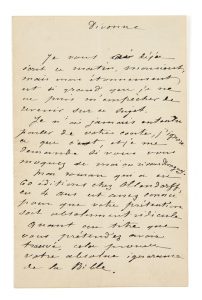 Divonne
Je vous ai déjà
écrit ce matin, monsieur,
mais mon étonnement
est si grand que je ne
ne puis m'empêcher de
revenir sur ce sujet.
Je n'ai jamais entendu
parler de votre conte, j'ignore
ce que c'est, et je me
demande si vous vous
moquez de moi
Mon roman qui a eu
60 éditions chez Ollendorff,
en 4 ans est assez connu
pour que votre prétention
soit absolument ridicule.
Quant au titre que
vous prétendez avoir
trouvé, cela prouve
votre absolue ignorance
de la Bible.